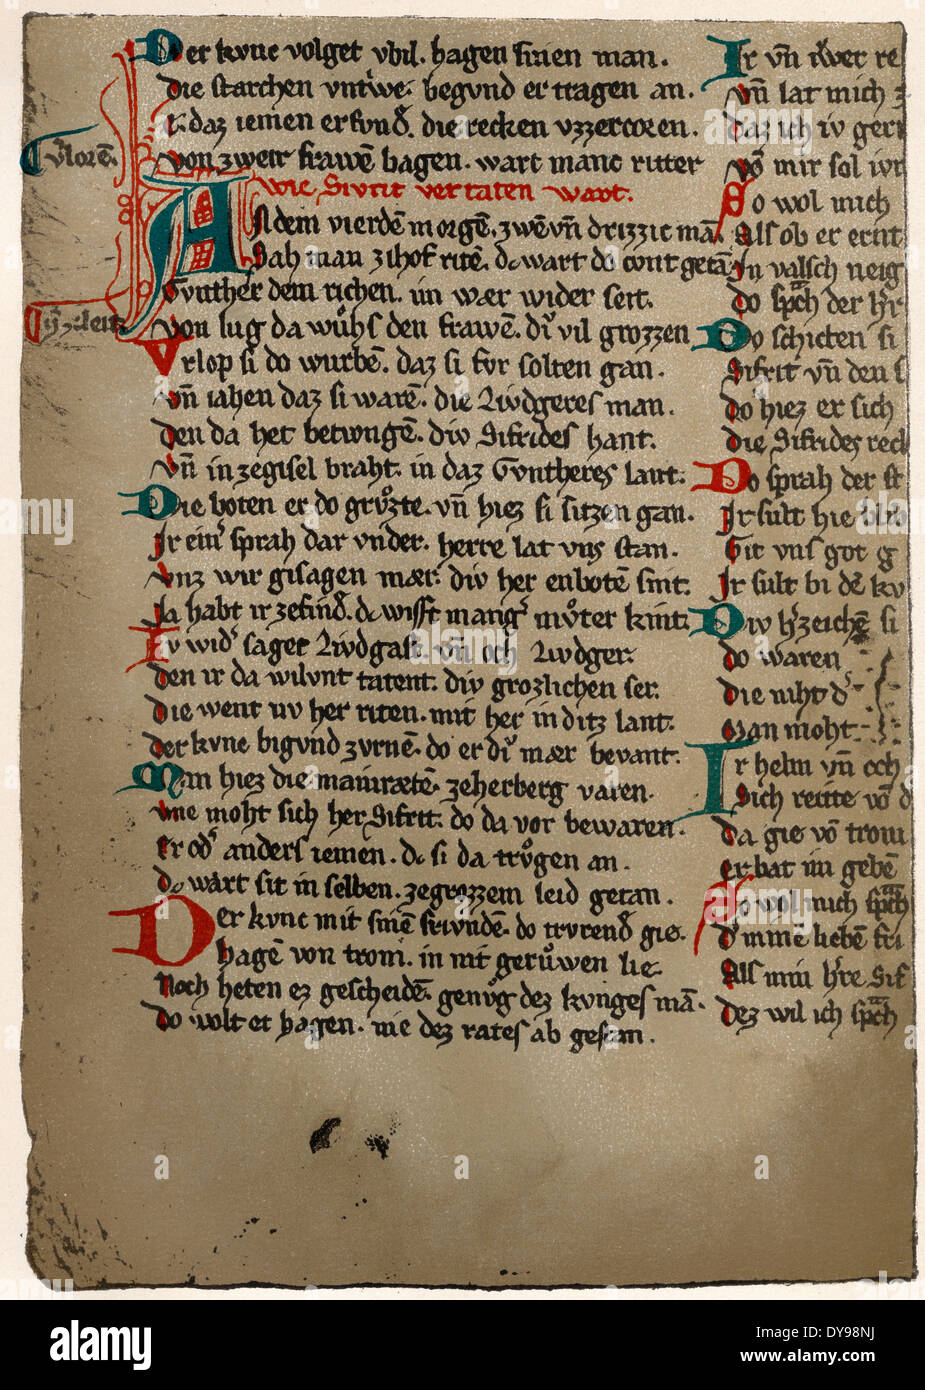 Der kvne volget vbil. hagen sinen man.
die starchen vntrwe. begvnd er tragen an.
e. daz iemen erfvnd. die recken vzzercoren.
von zweir frawē bagen. wart manc ritter
v̓lorē.
wie Sivrit verraten wart.
An dem vierdē morgē. zwēvn̄ drizzic mā.
Sah man zihof ritē. dc wart do cont getā
Gvnther dem richen. im wær wider seit.
Von lug da wůhs den frawē. dív vil grozzen
Vrlop si do wurbē. daz si for solten gan.
vn̄ iahen daz si warē. die Livdgeres man.
den da het betwngē. div Sifrides hant.
vn̄ in zegisel braht. in daz Gvntheres lant.
Die boten er do grůzte. vn̄ hiez si sitzen gan.
Ir ein̓ sprah dar vnder. herre lat vns stan.
vnz wir gisagen mær. div her enbotē sint.
Ja habt ir zefind̓. dc wisst mang̓ můter kint.
Ir wid̓ saget Livdgast. vn̄ och Livdger.
den ir da wilvnt tatent. div grozlichen ser.
die went iv her riten. mit her in ditz lant.
der kvne bigvnd zvrnē. do er dív mær bevant.
Man hiez die mainrætē. zeherberg varen.
wie moht sich her Sifrit. do da vor bewaren.
er od̓ anders iemen. dc si da trůgen an.
do wart sit in selben. zegrozzem leid getan.
Der kvnc mit sinē frivndē. do trvrend̓ gie.
hagē von troni. in nit gerůwen lie
Noch heten ez gescheidē. genůg dez kvnges mā.
do wolt et hagen. nie dez rates ab gestan.
Ir vn̄ iwer re
vn̄ lat mich
daz ich iv gern
vō mir sol iw
So wol mich
Als ob er ernt
In valsch neig
do sp̄ch der h̓r
Do schicten si
Sifrit vn̄ den s
do hiez er sich
die Sifrides reck
Do sprah der st
Ir sult hie blib
Git vns got g
Ir sult bi dē kv
Div h̓zeichē si
do waren
die niht d̓
man moht
Ir helm vn̄ och
Sich reitte vō d
da gie vō troni
er bat im gebē
So wol mich sp̄ch
d̓ minē liebē fri
Als min h̓re Sif
dez wil ich sp̄ch
alamy
DY98NJ
www.alamy.com